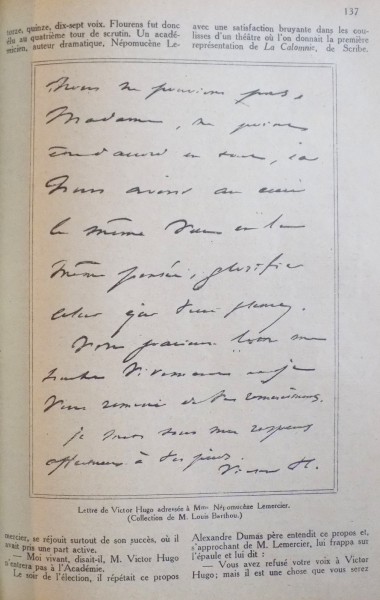 137
torze, quinze, dix-sept voix. Flourens fut donc
élu au quatrième tour de scrutin. Un acadé-
micien, auteur dramatique, Népomucène Le-
avec une satisfaction bruyante dans les cou-
lisses d'un théâtre où l'on donnait la première
représentation de La Calomnie, de Scribe.
Nous ne pouvions pas,
Madame, ne point
être d'accord en tout, car
Nous avions au cœur
le même vœu et la
même pensée, glorifier
celui que vous pleurez.
Votre gracieuse lettre me
touche vivement et je
vous remercie de vos remerciements.
je mets tous mes respects
affectueux à vos pieds.
Victor H.
Lettre de Victor Hugo adressée à Mme Népomucène Lemercier.
(Collection de M. Louis Barthou.)
mercier, se réjouit surtout de son succès, où il
avait pris une part active.
— Moi vivant, disait-il, M. Victor Hugo
n'entrera pas à l'Académie.
Le soir de l'élection, il répétait ce propos
Alexandre Dumas père entendit ce propos et,
s'approchant de M. Lemercier, lui frappa sur
l'épaule et lui dit :
— Vous avez refusé votre voix à Victor
Hugo; mais il est une chose que vous serez